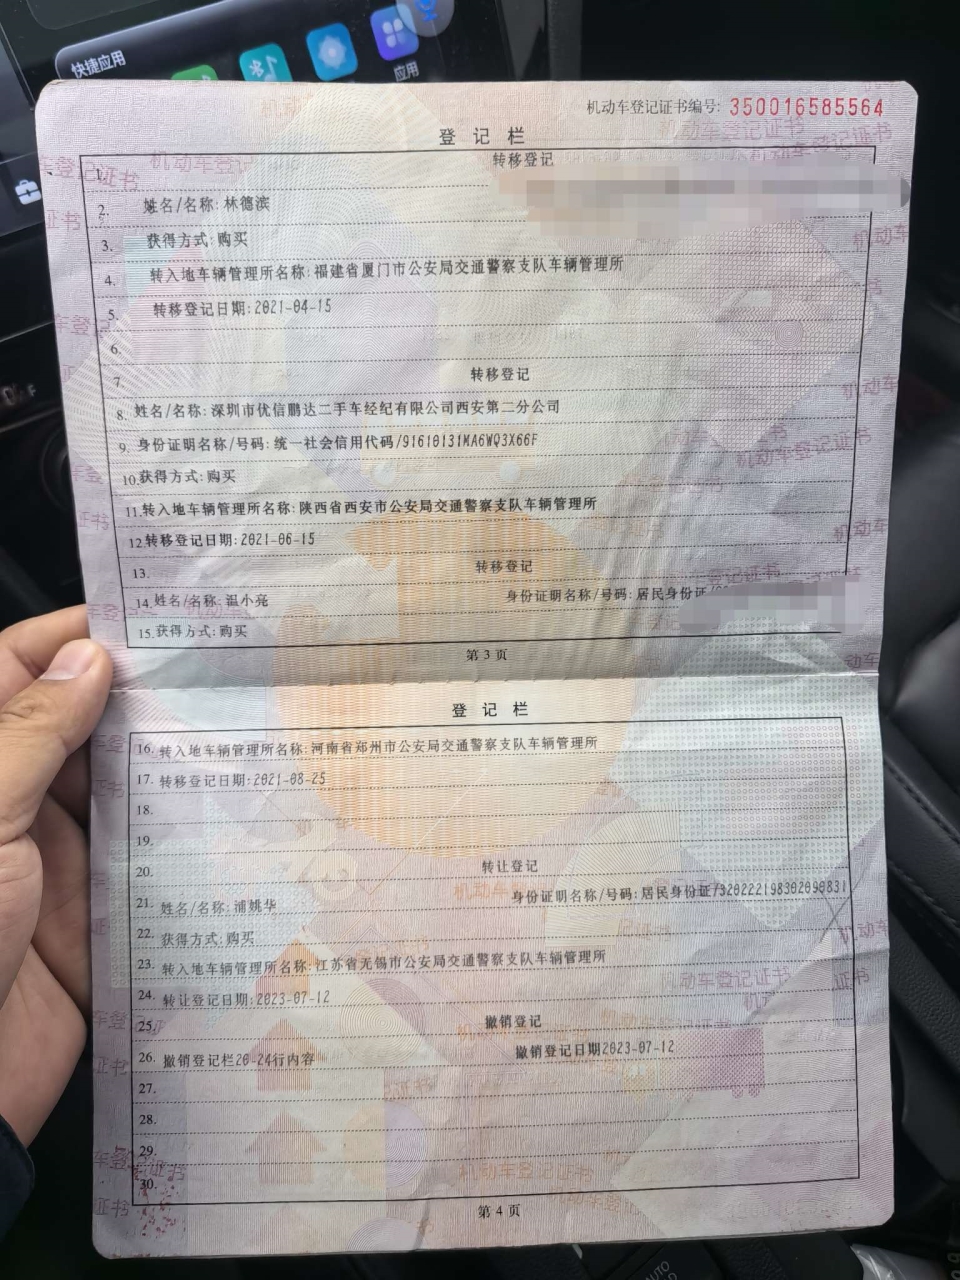 快捷应用
应用
机动车登记证书编号: 350016585564
登记栏
1. 转移登记
2. 姓名/名称: 林德滨
3. 获得方式: 购买
4. 转入地车辆管理所名称: 福建省厦门市公安局交通警察支队车辆管理所
5. 转移登记日期: 2021-04-15
6.
7. 转移登记
8. 姓名/名称: 深圳市优信鹏达二手车经纪有限公司西安第二分公司
9. 身份证明名称/号码: 统一社会信用代码/91610131MA6WQ3X66F
10. 获得方式: 购买
11. 转入地车辆管理所名称: 陕西省西安市公安局交通警察支队车辆管理所
12. 转移登记日期: 2021-06-15
13. 转移登记
14. 姓名/名称: 温小亮 身份证明名称/号码: 居民身份证/
15. 获得方式: 购买
第 3 页
登记栏
16. 转入地车辆管理所名称: 河南省郑州市公安局交通警察支队车辆管理所
17. 转移登记日期: 2021-08-25
18.
19.
20. 转让登记
21. 姓名/名称: 浦姚华 身份证明名称/号码: 居民身份证/320222198302090831
22. 获得方式: 购买
23. 转入地车辆管理所名称: 江苏省无锡市公安局交通警察支队车辆管理所
24. 转让登记日期: 2023-07-12
25. 撤销登记
26. 撤销登记栏20-24行内容 撤销登记日期2023-07-12
27.
28.
29.
30.
第 4 页
AUTO